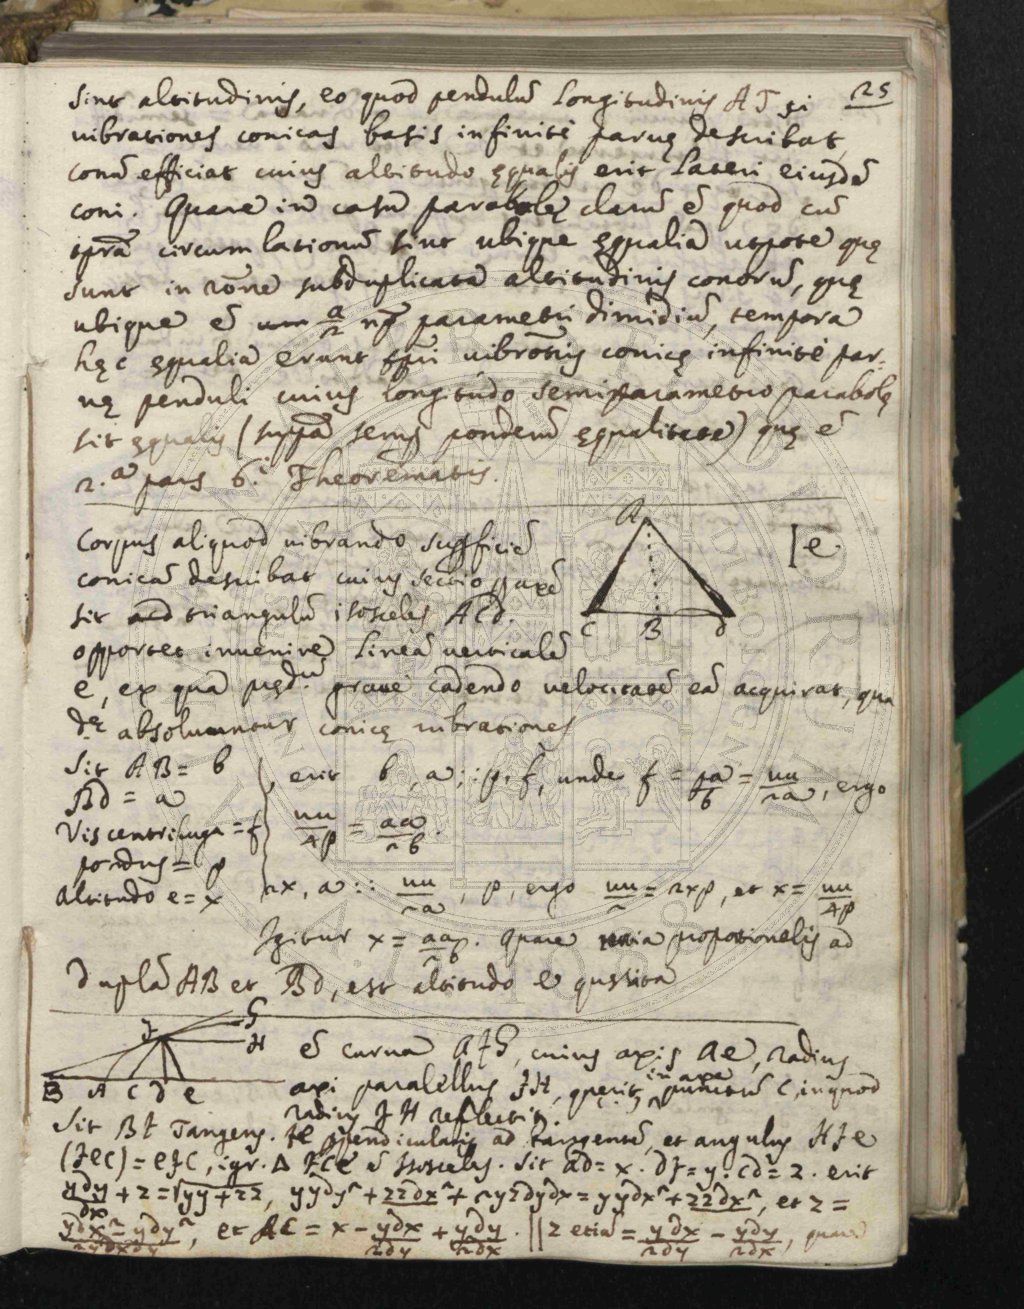 25
sint altitudinis, eo quod pendulũ Longitudinis AF si
vibrationes conicas basis infinitè parvę describat,
conũ efficiat cuius altitudo ęqualis erit Lateri eiusdẽ
coni. Quare in casu parabolę clarũ ẽ quod cũ
tpra circumlationũ sint ubique ęqualia utpote quę
sunt in rõne subduplicata altitudinis conorũ, quę
ubique ẽ a/2 parametri dimidiũ, tempora
hęc ęqualia erunt vibrõnis conicę infinitè par-
vę penduli cuius longitudo semiparametro parabolę
sit ęqualis (supp̃a semp ponderũ ęqualitate) quę ẽ
2.a pars 6.i Theorematis.
Corpus aliquod vibrando supficiẽ
conicã describat cuius sectio p axẽ
sit triangulũ isosceles ACd.
opportet invenire Lineã verticalẽ
e, ex qua pręd.ũ grave cadendo velocitatẽ eã acquirat, qua
absolvuntur conicę vibrationes
A
C B d
[e
Sit AB = b
Bd = a
Vis centrifuga = f
pondus = p
Altitudo e = x
erit b, a :: p, f, unde f = pa/b = uu/2a, ergo
uu/4p = aa/2b.
2x, a :: uu/2a, p, ergo uu/2 = 2xp, et x = uu/4p
Igitur x = aa/2b. Quare proportionalis ad
duplã AB et Bd, est altitudo e quęsita
F G H
B A C d e
ẽ curva AFG, cuius axis Ae, radius
axi parallelus FH, quęrit, in axe punctũ C, in quod
radius FH reflectit.
Sit BF Tangens. Fe ppendicularis ad tangentẽ, et angulus HFe
(FeC) = eFC, igr. Δ FCe ẽ Isosceles. Sit Ad = x. dF = y. Cd = z. erit
ydy/dx + z = √yy+zz, yydy² + zzdx² + 2yzdydx = yydx² + zzdx², et z =
ydx² - ydy²/2dxdy, et AC = x - ydx/2dy + ydy/2dx. || z etiã = ydx/2dy - ydy/2dx, quare